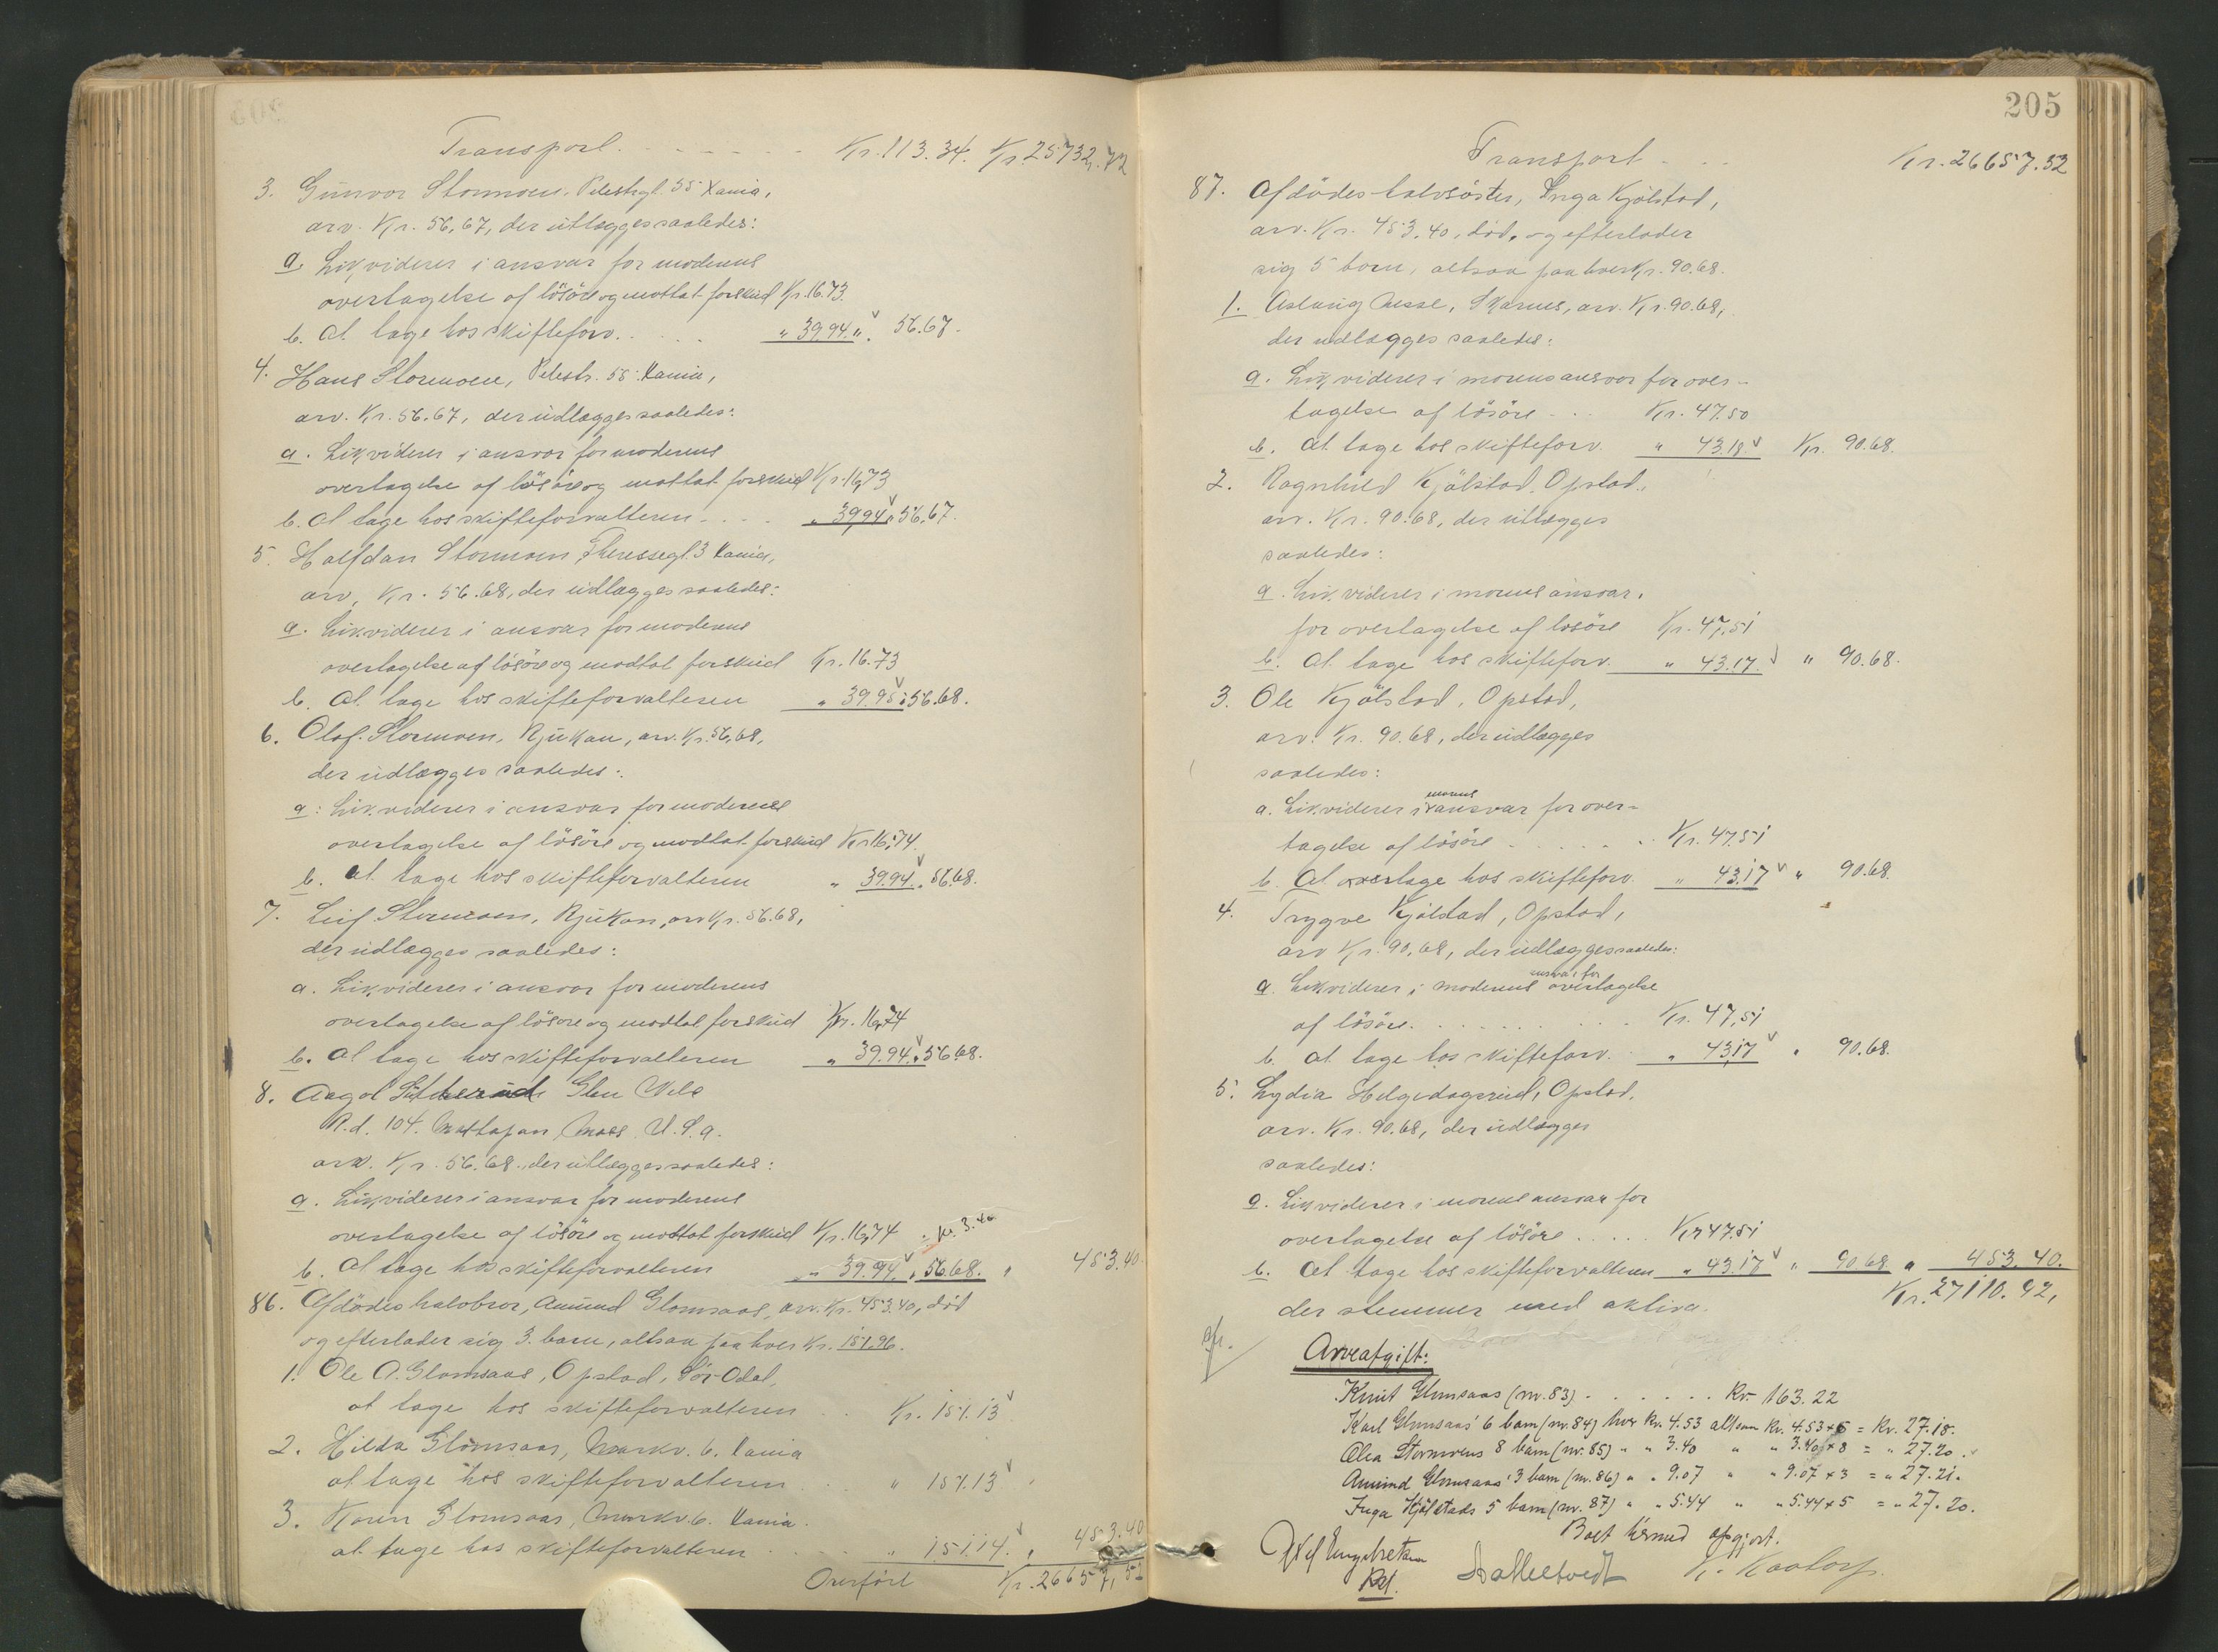 Transport. - - - - - - Kr. 113.34. Kr. 25732,72
3. Gunvor Stormoen, Pilestrgl. 55 Kania,
arv. Kr. 56,67, der utlægges saaledes:
a. Likviderer i ansvar for moderens
overtagelse af lösöre og mottat forskud Kr. 16.73.
b. At tage hos skifteforv. . . . . " 39.94. " 56.67.
4. Hans Stormoen, Pilestr. 55 Kania,
arv. Kr. 56.67, der udlægges saaledes:
a. Likviderer i ansvar for moderens
overtagelse af lösöre og mottat forskud Kr. 16,73
b. At tage hos skifteforvalteren . . . . " 39,94 " 56.67.
5. Halfdan Stormoen, Theressegt. 3 Kania,
arv, Kr. 56.68, der udlægges saaledes:
a. Likviderer i ansvar for moderens
overtagelse af lösöre og modtat forskud Kr. 16.73
b. At tage hos skifteforvalteren " 39.95 " 56.68.
6. Olaf Stormoen, Rjukan, arv. Kr. 56,68,
der udlægges saaledes:
a: Likviderer i ansvar for moderens
overtagelse af lösöre og modtat forskud Kr. 16,74.
b. At tage hos skifteforvalteren " 39.94. " 56.68.
7. Leif Stormoen, Rjukan, arv Kr. 56.68,
der udlægges saaledes:
a. Likviderer i ansvar for moderens
overtagelse af lösöre og modtat forskud Kr. 16,74
b. At tage hos skifteforvalteren " 39.94. " 56.68.
8. Aagot Glen
R.d. 104. Mattapan, Mass. U.S.a.
arv. Kr. 56.68. der utlægges saaledes:
a. Likviderer i ansvar for moderens
overtagelse af lösöre og mottat forskud Kr. 16,74 Kr. 3.40
b. At tage hos skifteforvalteren " 39.94. " 56.68. " 453.40
86. Afdödes halvbror, Amund Glomsaas, arv. Kr. 453.40, död
og efterlader sig 3. barn, altsaa paa hver Kr. 151.96.
1. Ole A. Glomsaas, Opstad, Sör-Odal,
at tage hos skifteforvalteren . . Kr. 151.13
2. Hilda Glomsaas, Markv. 6. Kania
at tage hos skifteforvalteren . . . " 151.13
3. Karen Glomsaas, Markv. 6. Kania.
at tage hos skifteforvalteren . . . . " 151.14. " 453.40
Overfört Kr. 26657,52
205
Transport - . . Kr. 26657.52
87. Afdödes halvsöster, Inga Kjölstad,
arv. Kr. 453.40, död, og efterlader
sig 5 barn, altsaa paa hver Kr. 90.68.
1. Aslaug Aasse, Skarnes, arv. Kr. 90.68,
der udlægges saaledes:
a. Likviderer i morens ansvar for over-
tagelse af lösöre - . . Kr. 47.50
b. At tage hos skifteforv. " 43.18 Kr. 90.68.
2. Ragnhild Kjölstad, Opstad,
arv. Kr. 90.68, der utlægges
saaledes:
a. Likviderer i morens ansvar.
for overtagelse af lösöre Kr. 47,51
b. At tage hos skifteforv. " 43.17. " 90.68.
3. Ole Kjölstad, Opstad,
arv. Kr. 90.68, der udlægges
saaledes:
a. Likviderer i morens ansvar for over-
tagelse af lösöre . . . . . . Kr. 47.51
b. At overtage hos skifteforv. " 43.17 " 90.68.
4. Trygve Kjölstad, Opstad,
arv Kr. 90,68, der udlægges saaledes:
a. Likviderer i moderens ansvar for overtagelse
af lösöre. . . . . . . . . Kr. 47,51
b. At tage hos skifteforv. . " 43,17 " 90.68.
5. Lydia Helgedagsrud, Opstad,
arv. Kr. 90.68, der udlægges
saaledes:
a. Likviderer i morens ansvar for
overtagelse af lösöre . . . . . Kr 47.51
b. At tage hos skifteforvalteren " 43.17 " 90.68 " 453.40.
der stemmer med aktiva. Kr. 27110.92,
Arveafgift:
Knut Glomsaas (nr. 83) . . . . . . . Kr. 163.22
Karl Glomsaas' 6 barn (nr. 84) hver kr. 4.53 altsaa kr. 4.53 x 6 = Kr. 27.18.
Olea Stormoens 8 barn (nr. 85) " " 3.40 " " 3.40 x 8 = " 27.20.
Amund Glomsaas' 3 barn (nr. 86) " " 9.07 " " 9.07 x 3 = " 27.21.
Inga Kjölstads 5 barn (nr. 87) " " 5.44 " " 5.44 x 5 = " 27.20.
Boet hermed opgjort.